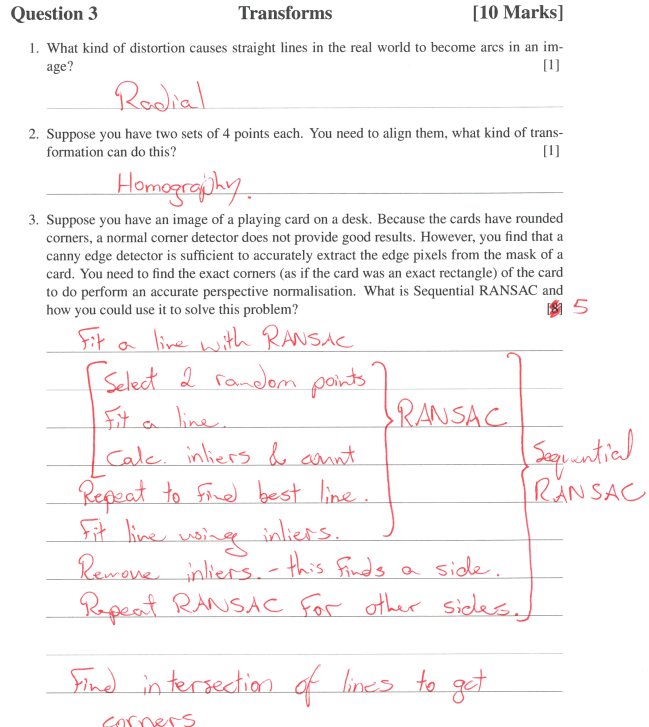 Question 3 Transforms [10 Marks]
1. What kind of distortion causes straight lines in the real world to become arcs in an im-
age? [1]
Radial
2. Suppose you have two sets of 4 points each. You need to align them, what kind of trans-
formation can do this? [1]
Homography.
3. Suppose you have an image of a playing card on a desk. Because the cards have rounded
corners, a normal corner detector does not provide good results. However, you find that a
canny edge detector is sufficient to accurately extract the edge pixels from the mask of a
card. You need to find the exact corners (as if the card was an exact rectangle) of the card
to do perform an accurate perspective normalisation. What is Sequential RANSAC and
how you could use it to solve this problem? 5
Fit a line with RANSAC
Select 2 random points
Fit a line. RANSAC
Calc. inliers & count
Sequential
Repeat to find best line. RANSAC
Fit line using inliers.
Remove inliers. - this finds a side.
Repeat RANSAC for other sides.
Find intersection of lines to get
corners